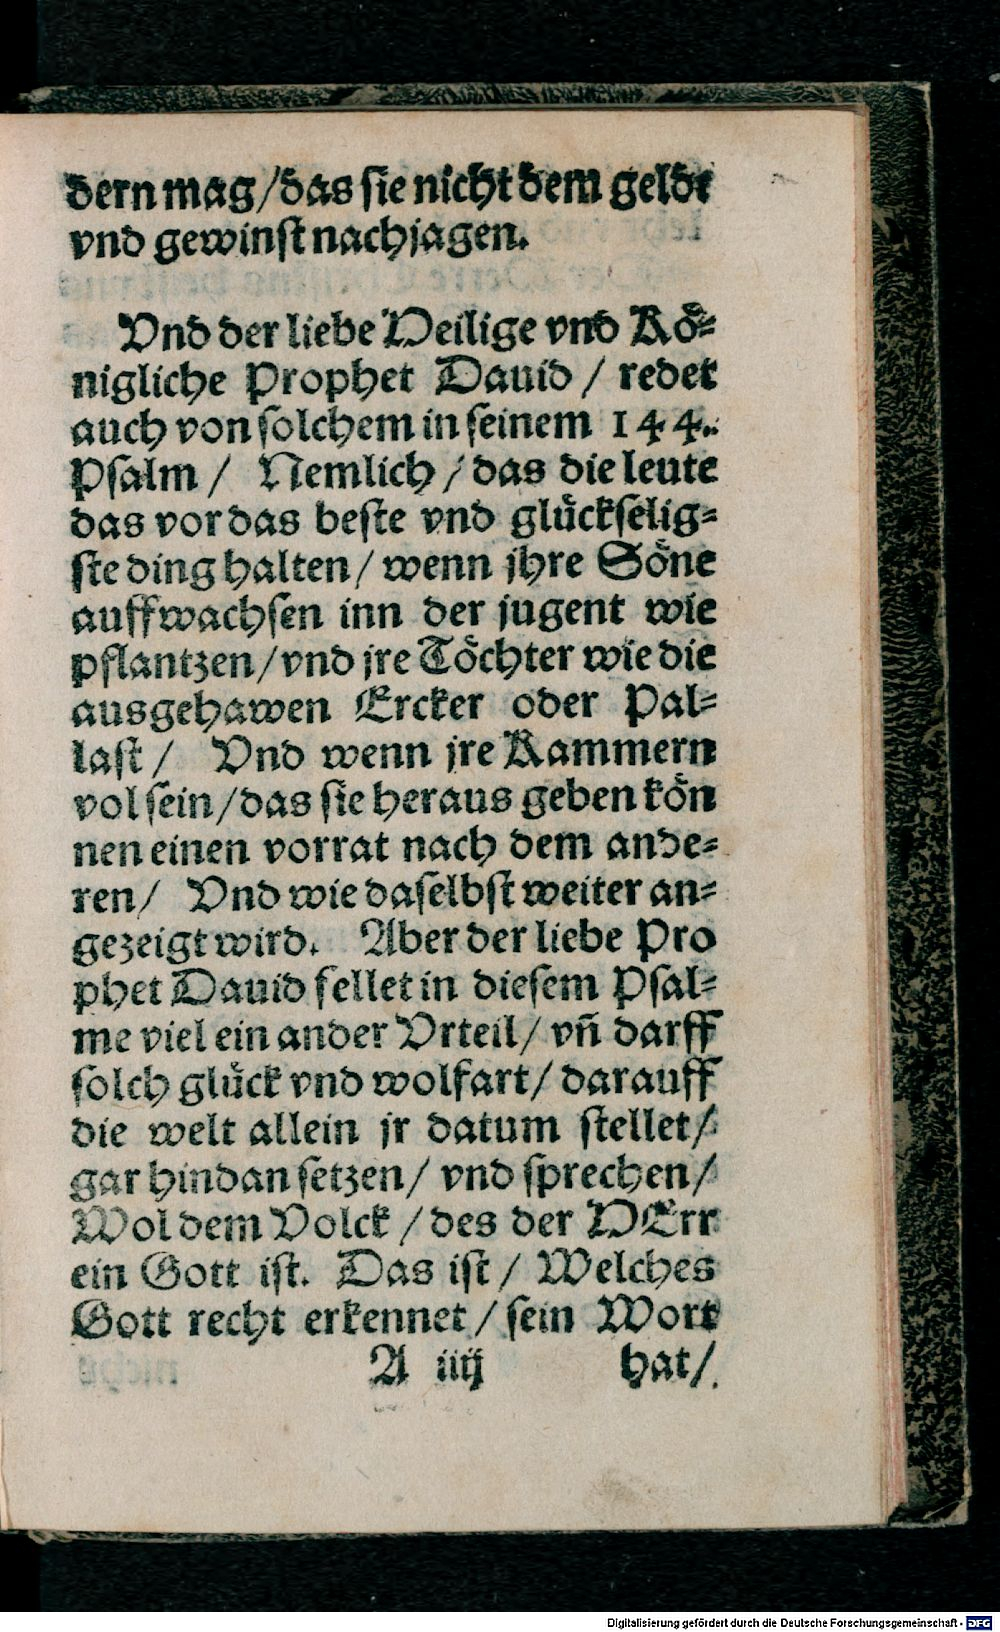 dern mag/das sie nicht dem gelde
vnd gewinst nachjagen.
Vnd der liebe Heilige vnd Kö-
nigliche Prophet Dauid / redet
auch von solchem in seinem 144.
Psalm / Nemlich / das die leute
das vor das beste vnd glückselig-
ste ding halten / wenn jhre Söne
auffwachsen inn der jugent wie
pflantzen/vnd jre Töchter wie die
ausgehawen Ercker oder Pal-
last / Vnd wenn jre Kammern
vol sein/das sie heraus geben kön
nen einen vorrat nach dem ande-
ren/ Vnd wie daselbst weiter an-
gezeigt wird. Aber der liebe Pro
phet Dauid fellet in diesem Psal-
me viel ein ander Vrteil/ vñ darff
solch glück vnd wolfart/ darauff
die welt allein jr datum stellet/
gar hindan setzen/ vnd sprechen/
Wol dem Volck / des der HErr
ein Gott ist. Das ist / Welches
Gott recht erkennet / sein Wort
A iiij hat/
Digitalisierung gefördert durch die Deutsche Forschungsgemeinschaft - DFG